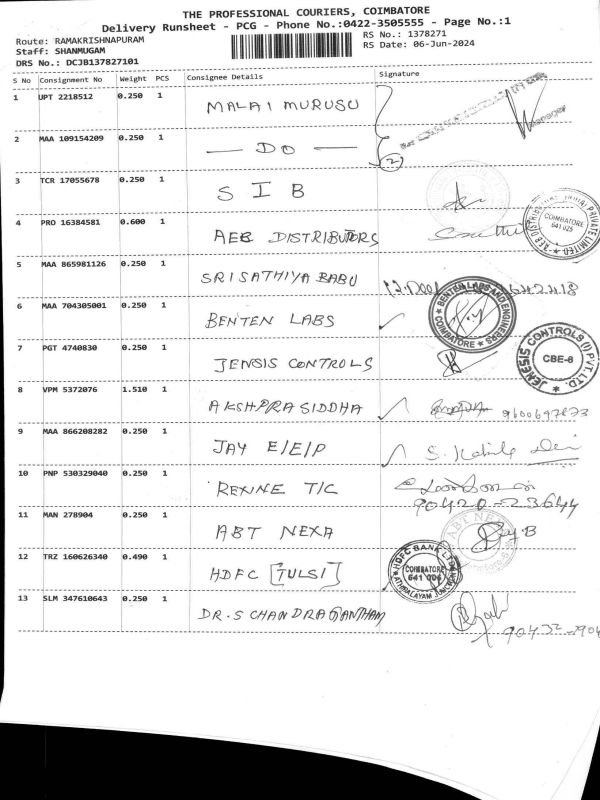 THE PROFESSIONAL COURIERS, COIMBATORE
Delivery Runsheet - PCG - Phone No.:0422-3505555 - Page No.:1
Route: RAMAKRISHNAPURAM
RS No.: 1378271
Staff: SHANMUGAM
RS Date: 06-Jun-2024
DRS No.: DCJB137827101
S No Consignment No Weight PCS Consignee Details Signature
1 UPT 2218512 0.250 1 MALAI MURUSU
Manager
2 MAA 109154209 0.250 1 — DO — 2
3 TCR 17055678 0.250 1 SIB
4 PRO 16384581 0.600 1 AEB DISTRIBUTORS
COIMBATORE
641 025
PRIVATE LIMITED
5 MAA 865981126 0.250 1 SRI SATHIYA BABU
6 MAA 704305001 0.250 1 BENTEN LABS
BENTEN LABS AND ENGINEERS
COIMBATORE
7 PGT 4740830 0.250 1 JENSIS CONTROLS
JENESIS CONTROLS (I) PVT. LTD.
CBE-6
8 VPM 5372076 1.510 1 AKSHPRASIDDHA
9 MAA 866208282 0.250 1 JAY E/E/P
10 PNP 530329040 0.250 1 REXINE T/C
90420-23644
11 MAN 278904 0.250 1 ABT NEXA
12 TRZ 160626340 0.490 1 HDFC [TULSI]
HDFC BANK LTD
COIMBATORE
641 006
13 SLM 347610643 0.250 1 DR.S CHANDRAGANTHAM